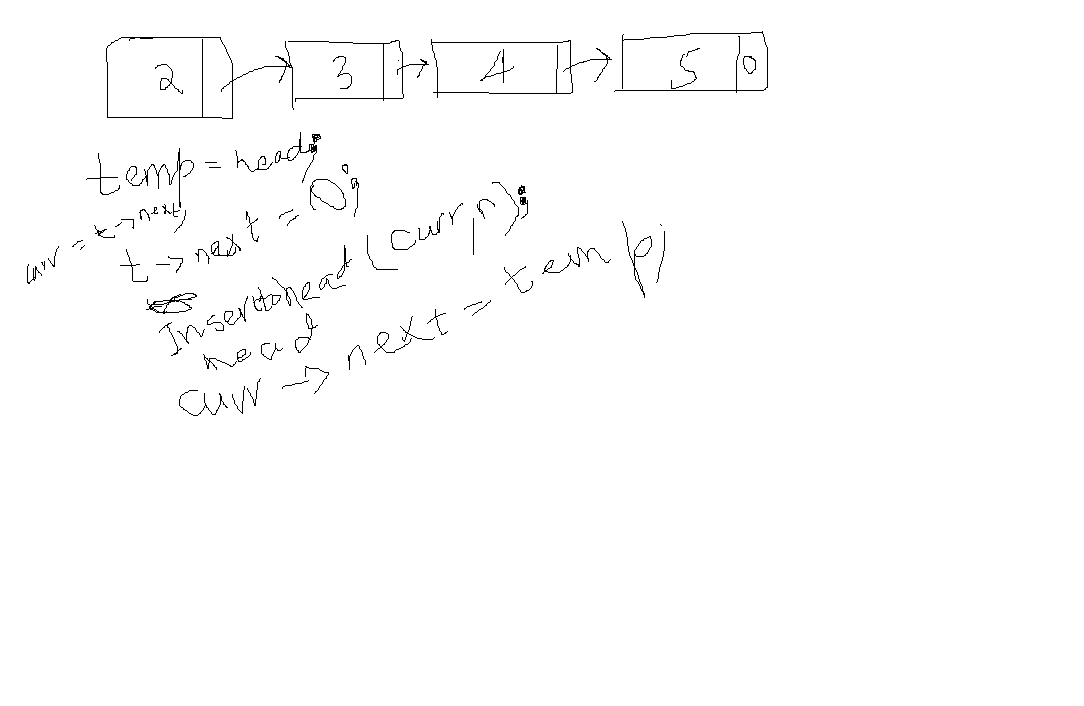 2 3 4 5 0
temp = head;
curr = t→next;
t→next = 0;
Inserttohead(curr,n);
head
curr→next = temp;